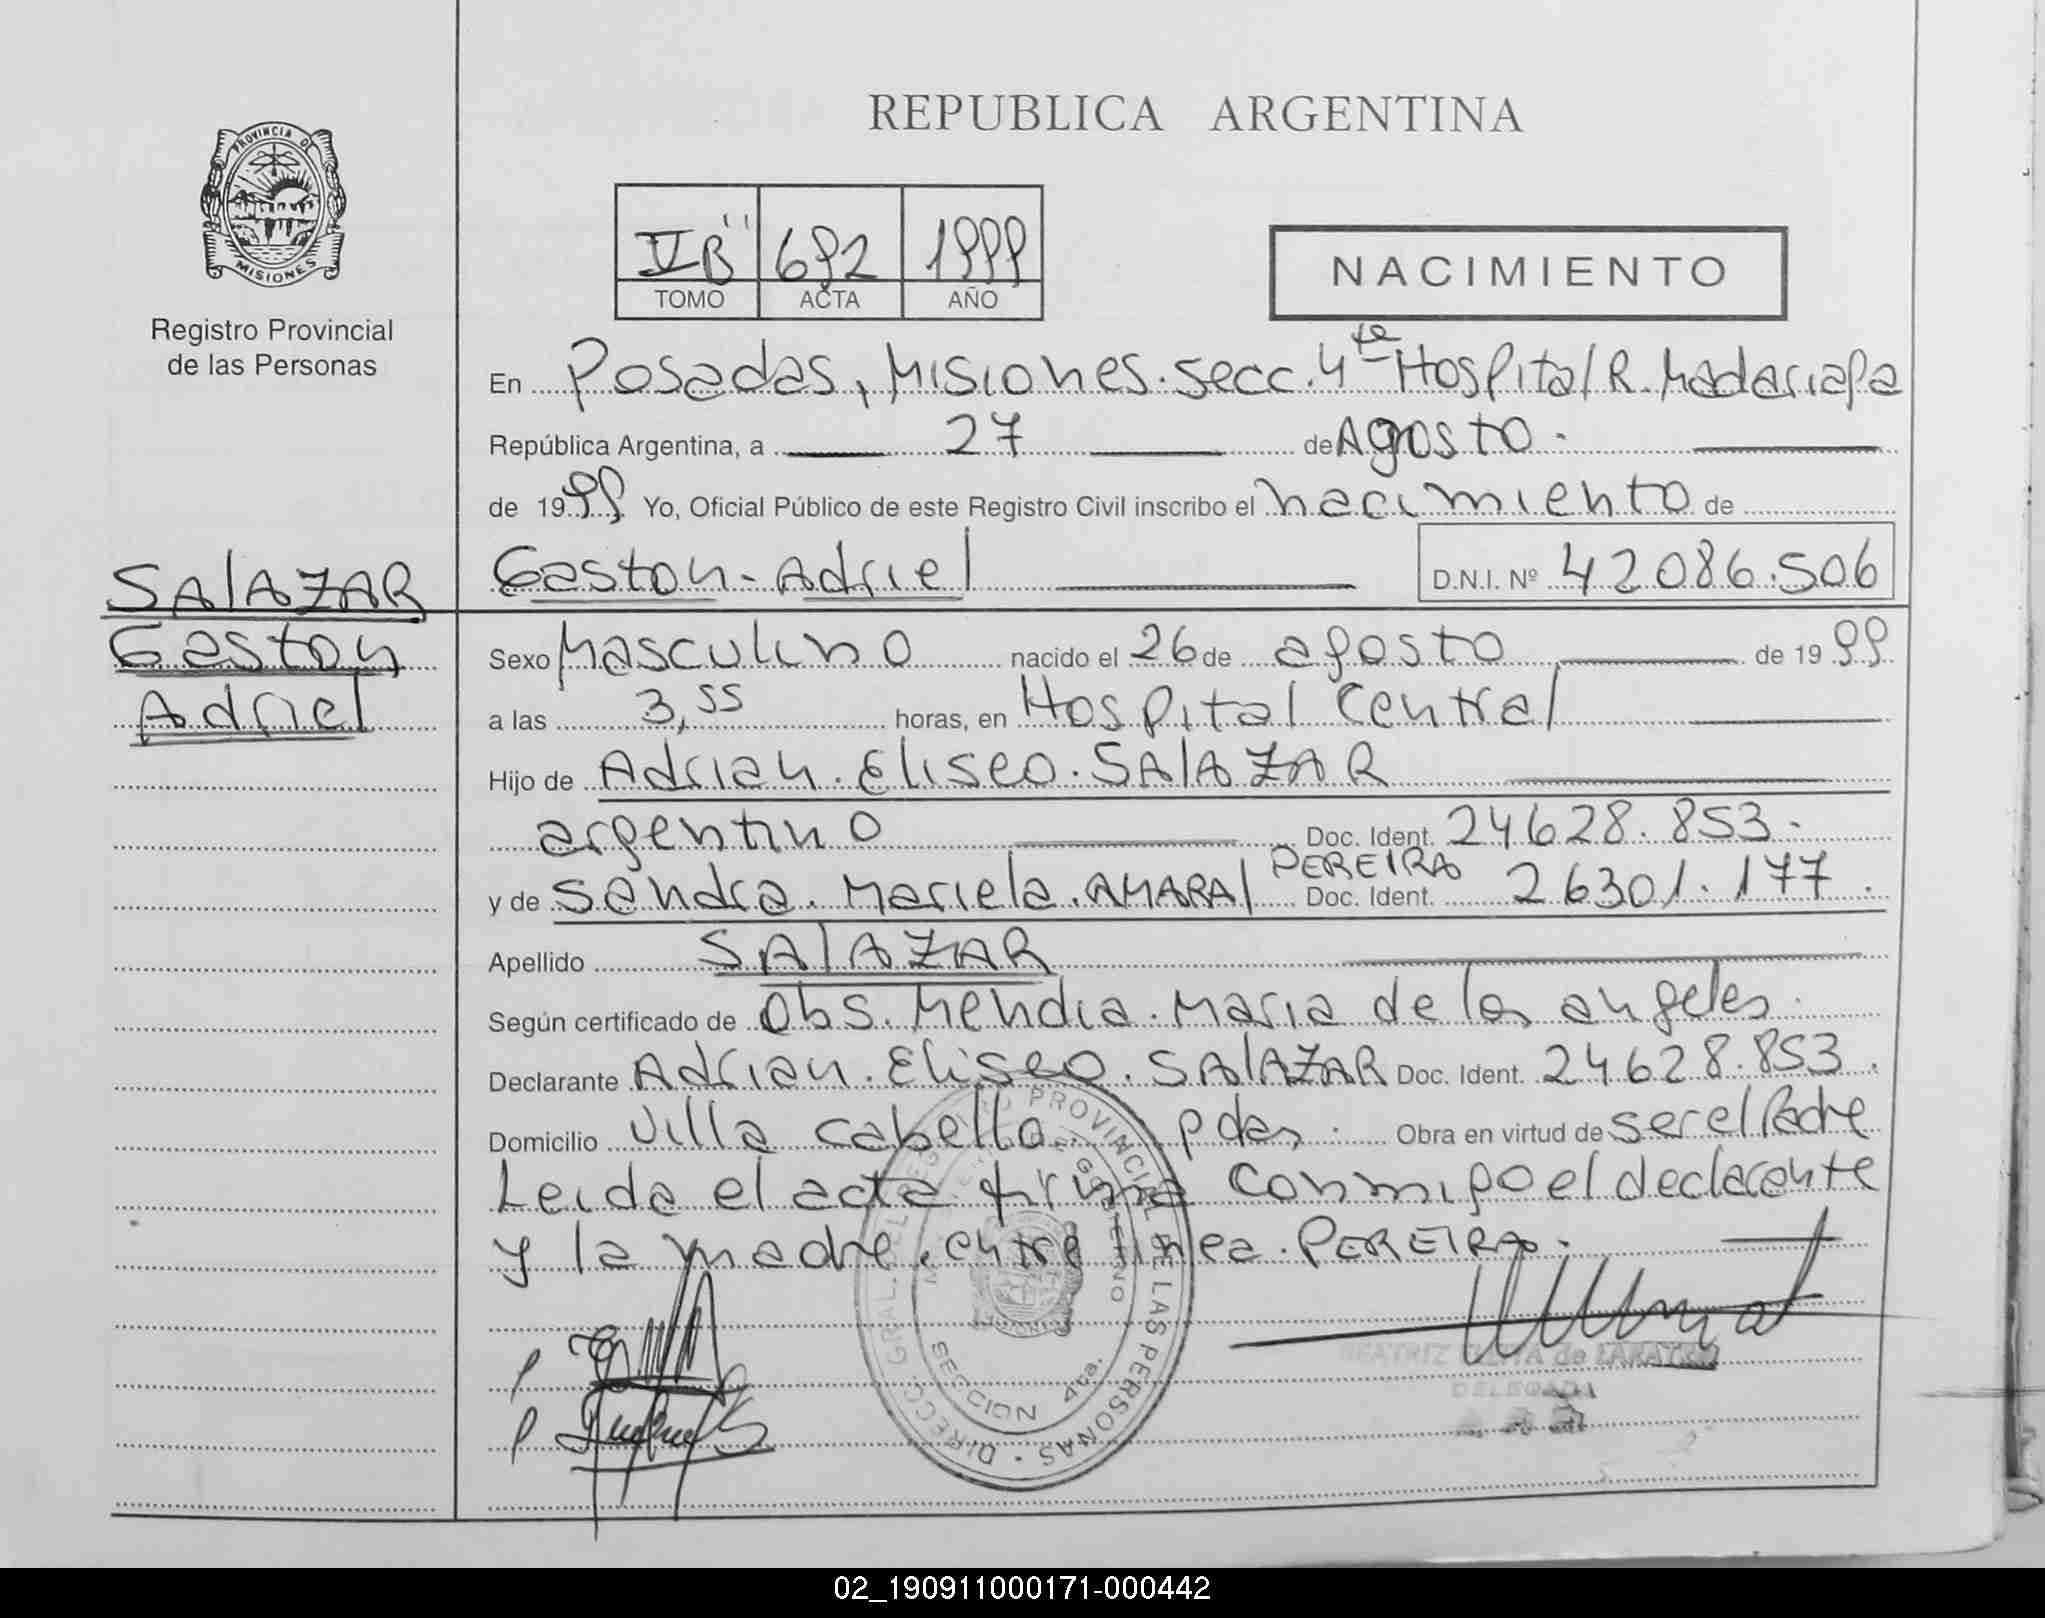 REPUBLICA ARGENTINA
PROVINCIA D
MISIONES
Registro Provincial
de las Personas
V"B" 692 1999
TOMO ACTA AÑO
NACIMIENTO
En Posadas, Misiones. secc. 4ta Hospital R. Madariaga
República Argentina, a 27 de Agosto.
de 1999 Yo, Oficial Público de este Registro Civil inscribo el nacimiento de
Gaston Adriel D.N.I. Nº 42086.506
SALAZAR
Gaston
Adriel
Sexo Masculino nacido el 26 de agosto de 1999
a las 3,55 horas, en Hospital Central
Hijo de Adrian. Eliseo. SALAZAR
argentino Doc. Ident. 24628.853.
y de Sandra. Mariela. AMARAL PEREIRA Doc. Ident. 26301.177.
Apellido SALAZAR
Según certificado de Obs. Mendia. Maria de los angeles.
Declarante Adrian. Eliseo. SALAZAR Doc. Ident. 24628.853.
Domicilio Villa Cabello. pdas. Obra en virtud de ser el Padre
Leida el acta firma conmigo el declarante
y la madre. entre linea. PEREIRA.
DIRECC. GRAL. DEL REGISTRO PROVINCIAL DE LAS PERSONAS
GOBIERNO
SECCION 4ta.
BEATRIZ de
DELEGADA
02_190911000171-000442